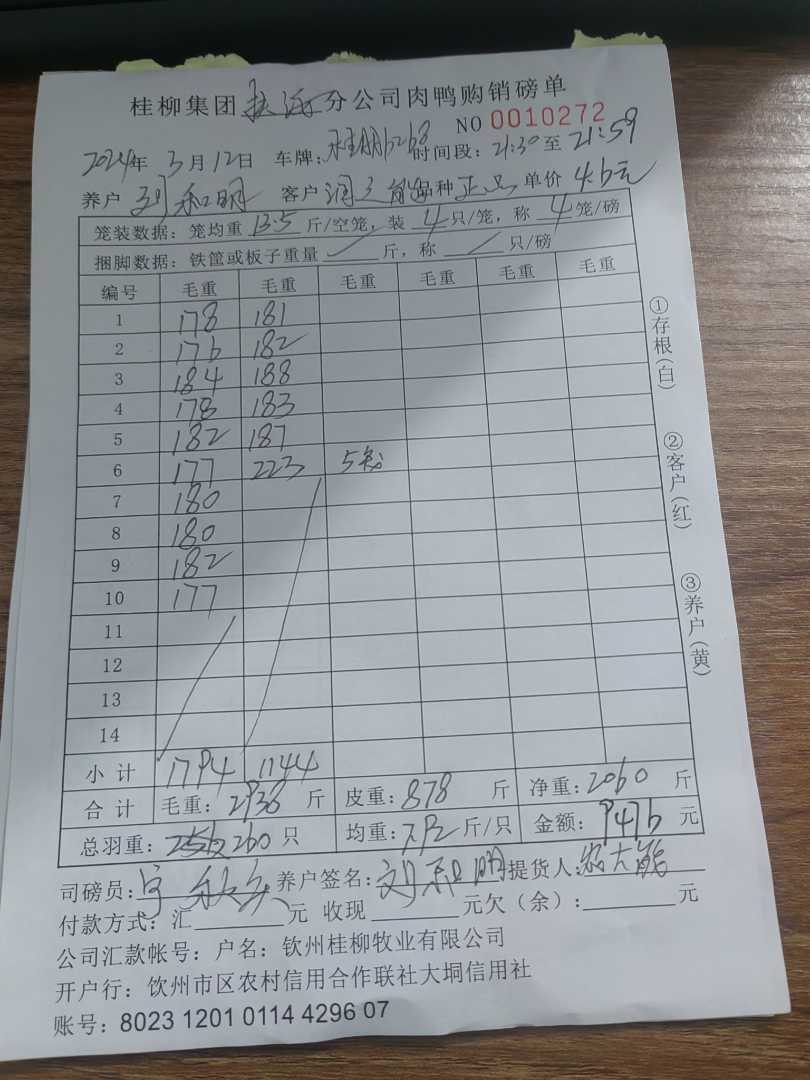 桂柳集团 分公司肉鸭购销磅单
NO 0010272
2024年 3月12日 车牌: 6268 时间段: 21:30 至 21:59
养户 刘和明 客户 品种 正品 单价 4.6元
笼装数据: 笼均重 13.5 斤/空笼, 装 4 只/笼, 称 4 笼/磅
捆脚数据: 铁筐或板子重量 / 斤, 称 / 只/磅
编号 毛重 毛重 毛重 毛重 毛重 毛重
1 178 181
2 176 182
3 184 188
4 178 183
5 182 187
6 177 223 5笼
7 180
8 180
9 182
10 177
11
12
13
14
小计 1794 1144
合计 毛重: 2938 斤 皮重: 878 斤 净重: 2060 斤
总羽重: 256 260 只 均重: 7.92 斤/只 金额: 9476 元
司磅员: 养户签名: 刘和明 提货人:
付款方式: 汇 元 收现 元欠(余): 元
公司汇款帐号: 户名: 钦州桂柳牧业有限公司
开户行: 钦州市区农村信用合作联社大垌信用社
账号: 8023 1201 0114 4296 07
①存根(白)
②客户(红)
③养户(黄)